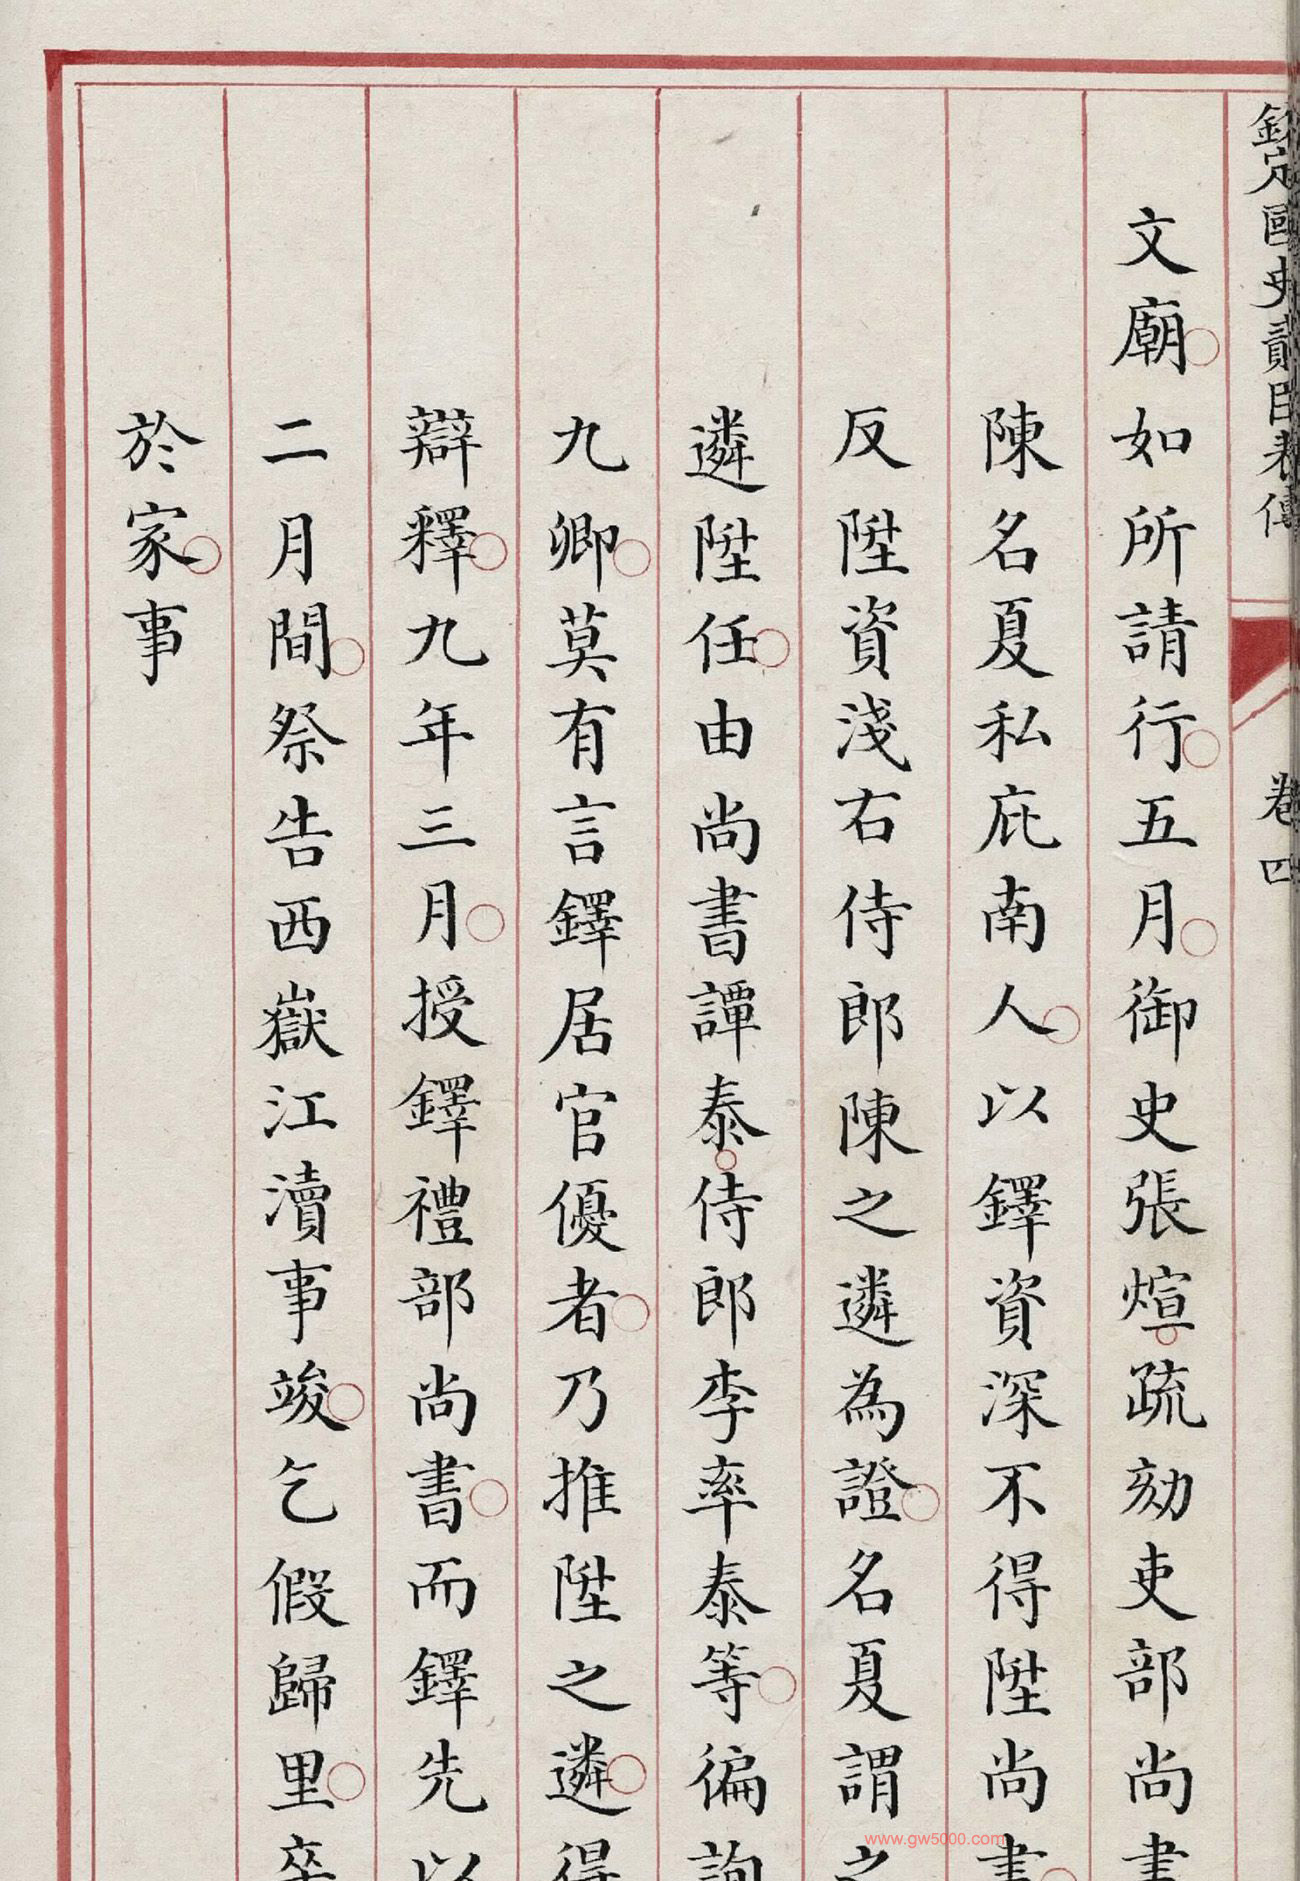 欽定國史貳臣表傳 卷四
文廟如所請行五月御史張煊疏劾吏部尚書
陳名夏私庇南人以鐸資深不得陞尚書
反陞資淺右侍郎陳之遴為證名夏謂之
遴陞任由尚書譚泰侍郎李率泰等徧詢
九卿莫有言鐸居官優者乃推陞之遴得
辯釋九年三月授鐸禮部尚書而鐸先以
二月間祭告西嶽江瀆事竣乞假歸里卒
於家事
www.gw5000.com